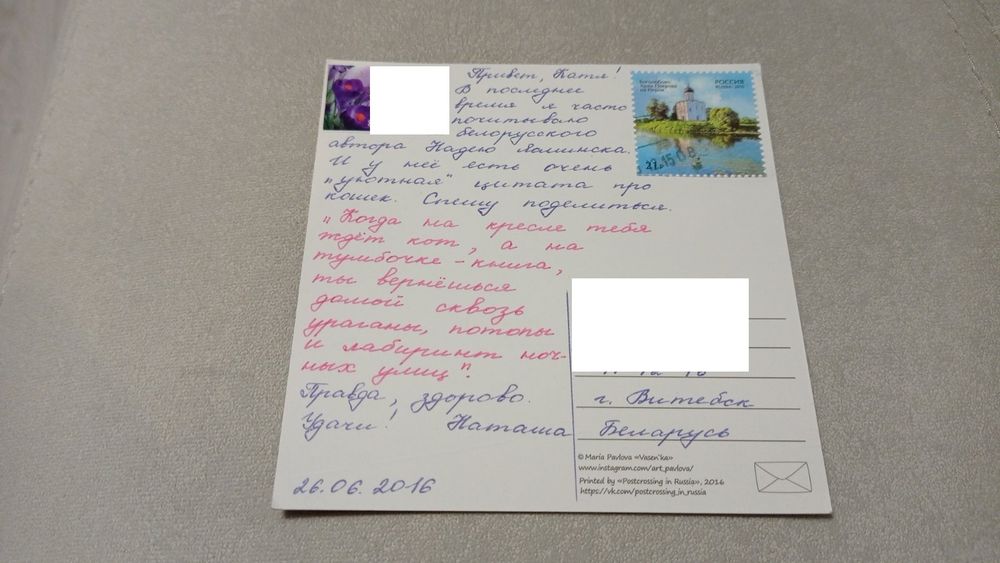 Привет, Катя!
В последнее
время я часто
почитываю
белорусского
автора Надею Ясминска.
И у неё есть очень
"уютная" цитата про
кошек. Спешу поделиться.
"Когда на кресле тебя
ждёт кот, а на
тумбочке - книга,
ты вернёшься
домой сквозь
ураганы, потопы
и лабиринт ноч-
ных улиц".
Правда, здорово.
Удачи! Наташа
26.06.2016
РОССИЯ
г. Витебск
Беларусь
© Maria Pavlova «Vasen'ka»
www.instagram.com/art_pavlova/
Printed by «Postcrossing in Russia», 2016
https://vk.com/postcrossing_in_russia